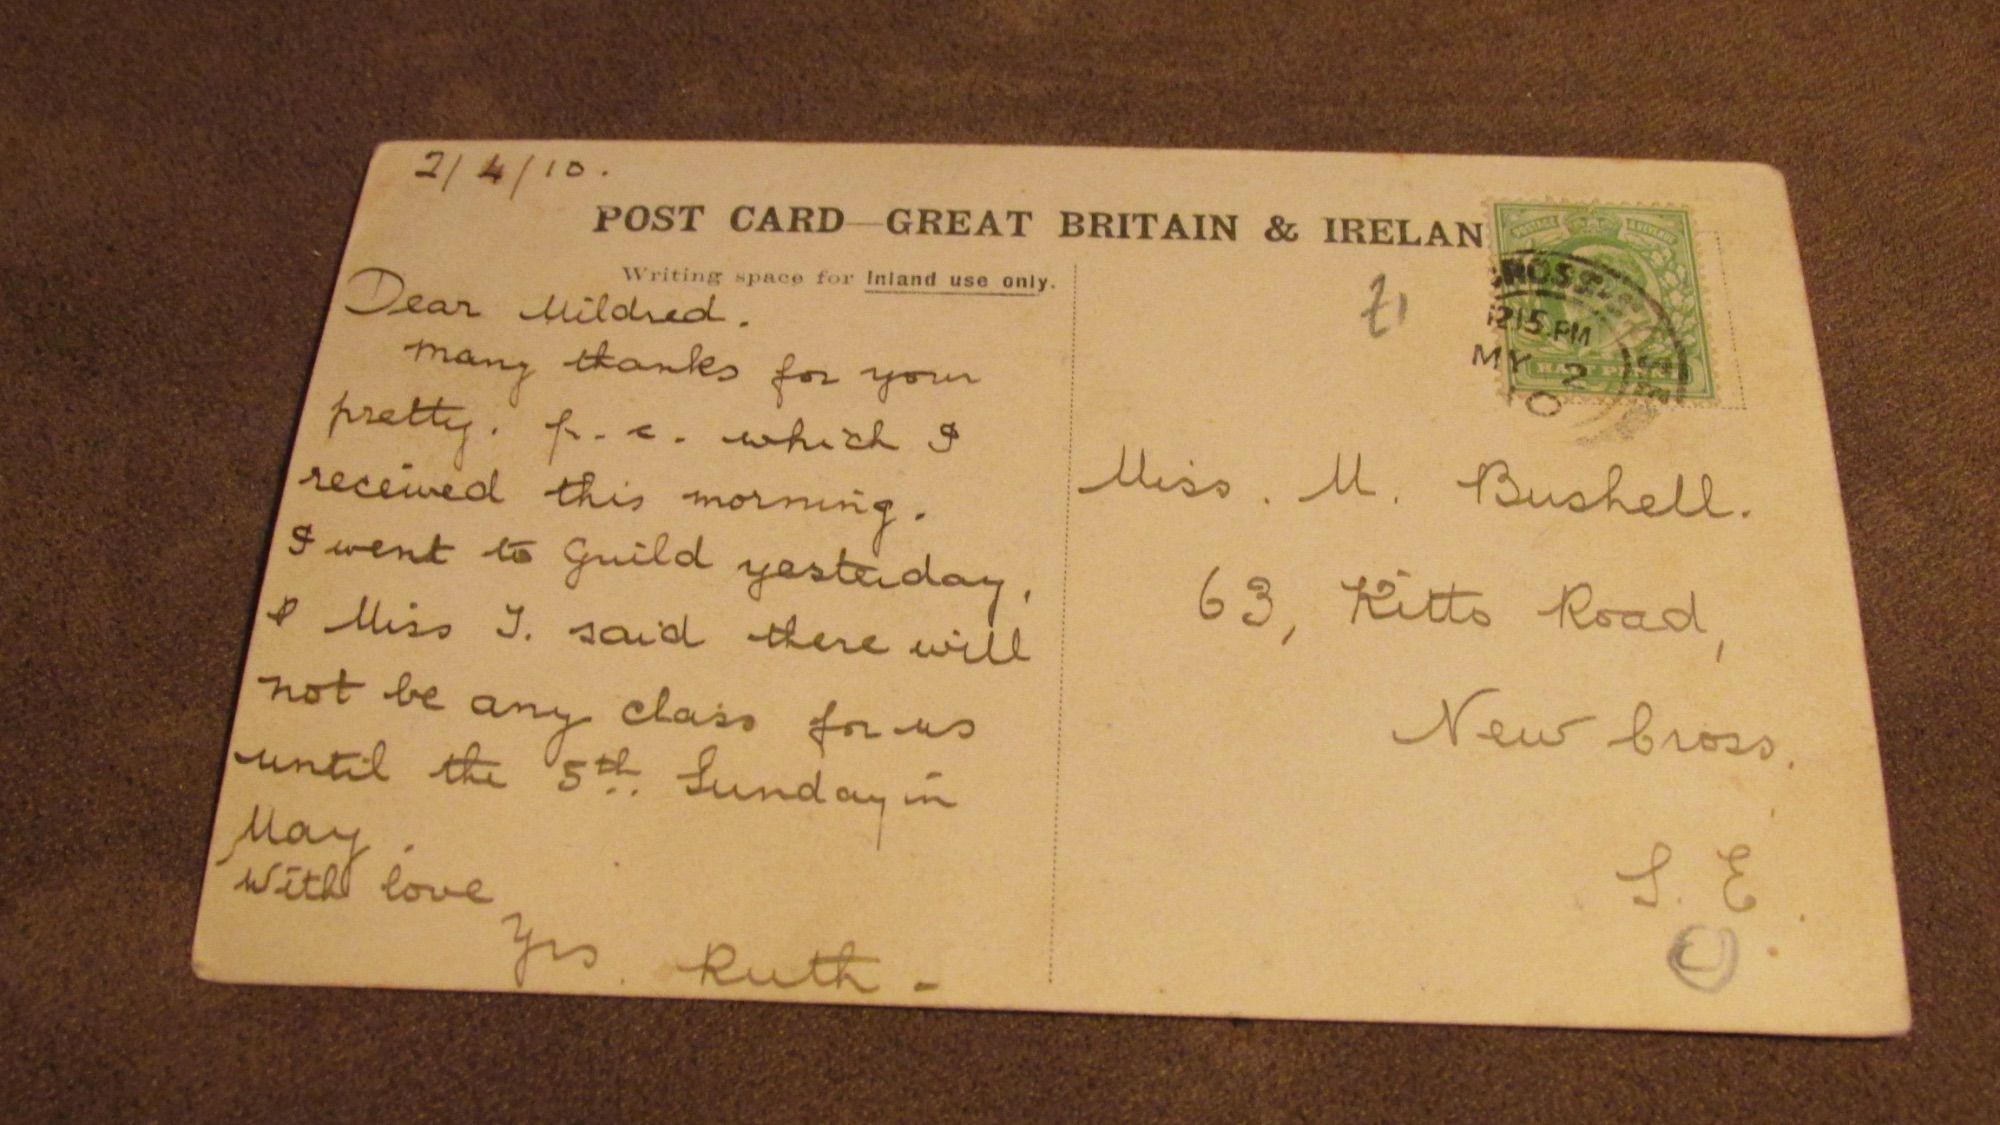 2/4/10.
POST CARD—GREAT BRITAIN & IRELAN
Writing space for Inland use only.
Dear Mildred.
Many thanks for your
pretty. p. c. which I
received this morning.
I went to Guild yesterday,
& Miss J. said there will
not be any class for us
until the 5th. Sunday in
May.
With love
Yrs. Ruth -
£1
ROSS
1215 PM
MY 2
10
HALF PENNY
Miss. M. Bushell.
63, Kitto Road,
New Cross.
S. E.